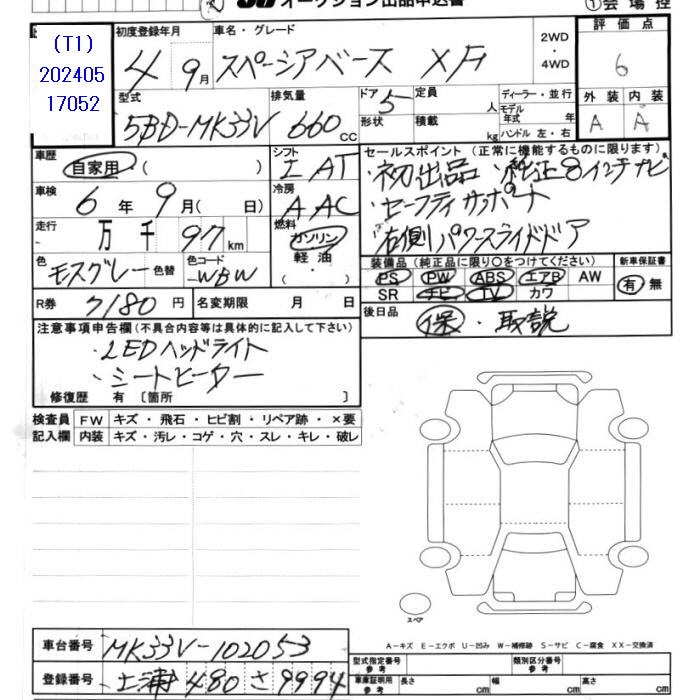 オークション出品申込書
① 会場控
(T1)
202405
17052
初度登録年月
4 9月
車名・グレード
スペーシアベース XF
2WD・4WD
評価点
6
型式
5BD-MK33V
排気量
660 cc
ドア 5
形状
定員 人
積載 kg
ディーラー・並行
モデル年式 年
ハンドル 左・右
外装 内装
A A
車歴
自家用・( )
シフト
I AT
車検
6年 9月( 日)
冷房
A AC
走行
万 千 97 km
燃料
ガソリン・軽油・
色
モスグレー 色替
色コード
WBW
R券 7180 円
名変期限 月 日
セールスポイント (正常に機能するものに限ります)
・初出品 ・純正8インチナビ
・セーフティサポート
・右側パワースライドドア
装備品(純正品に限り○をつけてください)
PS PW ABS エアB AW
SR ナビ TV カワ
新車保証書
有・無
後日品
保・取説
注意事項申告欄(不具合内容等は具体的に記入して下さい)
・LEDヘッドライト
・シートヒーター
修復歴 有 〔箇所 〕
検査員記入欄
FW キズ・飛石・ヒビ割・リペア跡・×要
内装 キズ・汚レ・コゲ・穴・スレ・キレ・破レ
スペア
A-キズ E-エクボ U-凹み W-補修跡 S-サビ C-腐食 XX-交換済
車台番号 MK33V-102053
登録番号 土浦 480 さ 9994
型式指定番号 参考
類別区分番号 参考
車庫証明用 参考
長さ cm 幅 cm 高さ cm